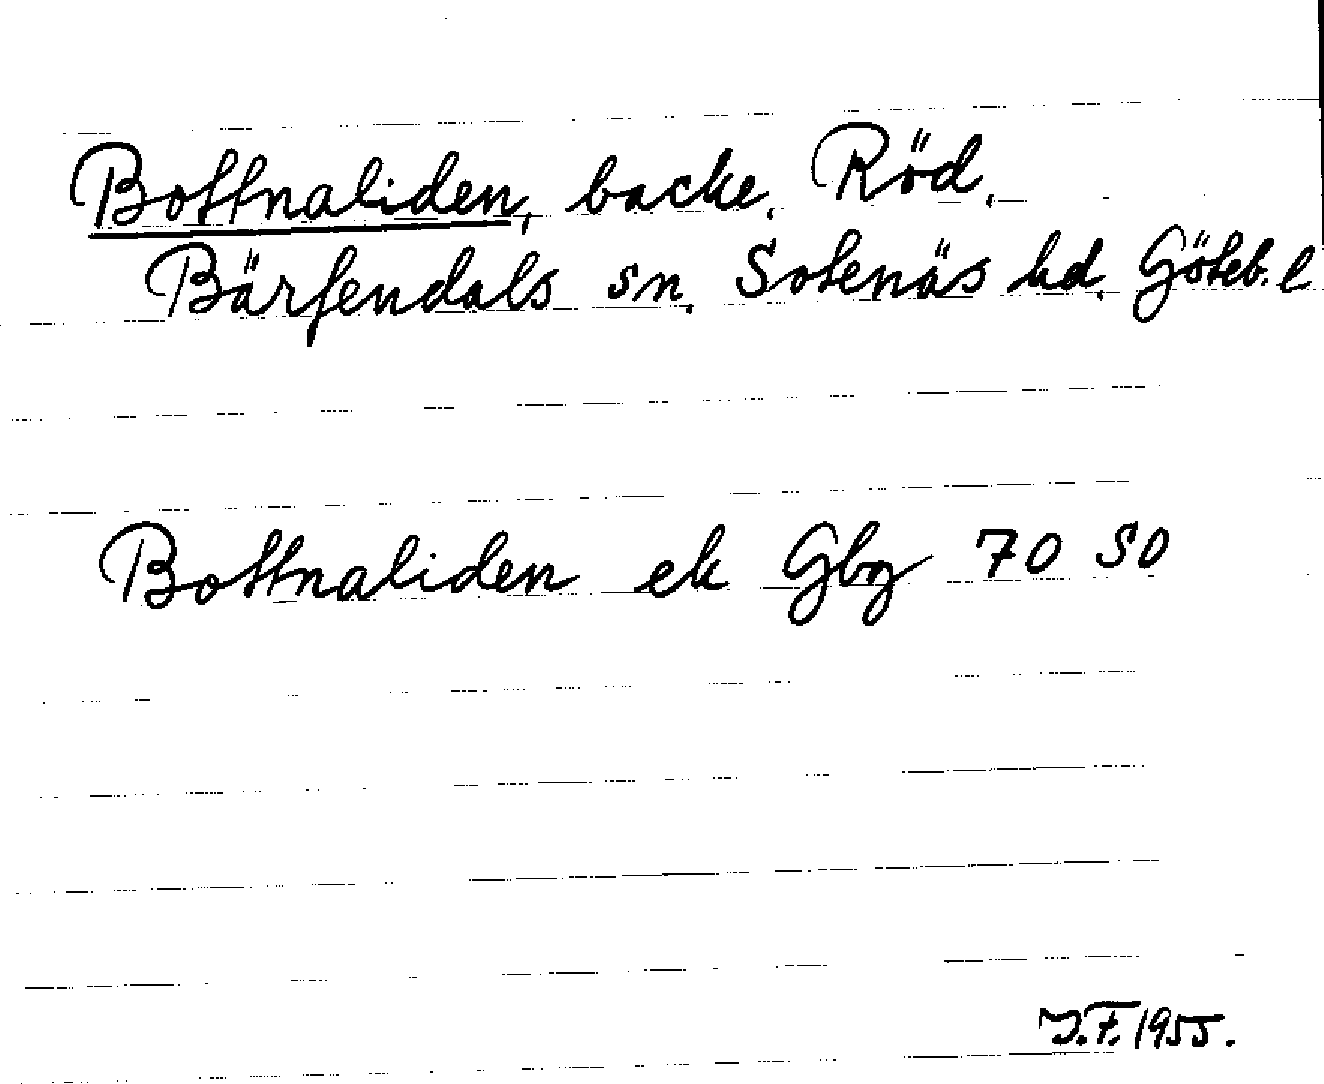 Bottnaliden, backe. Röd.
Bärfendals sn. Sotenäs hd. Göteb. l
Bottnaliden ek Gbg 70 SO
J.F. 1955.